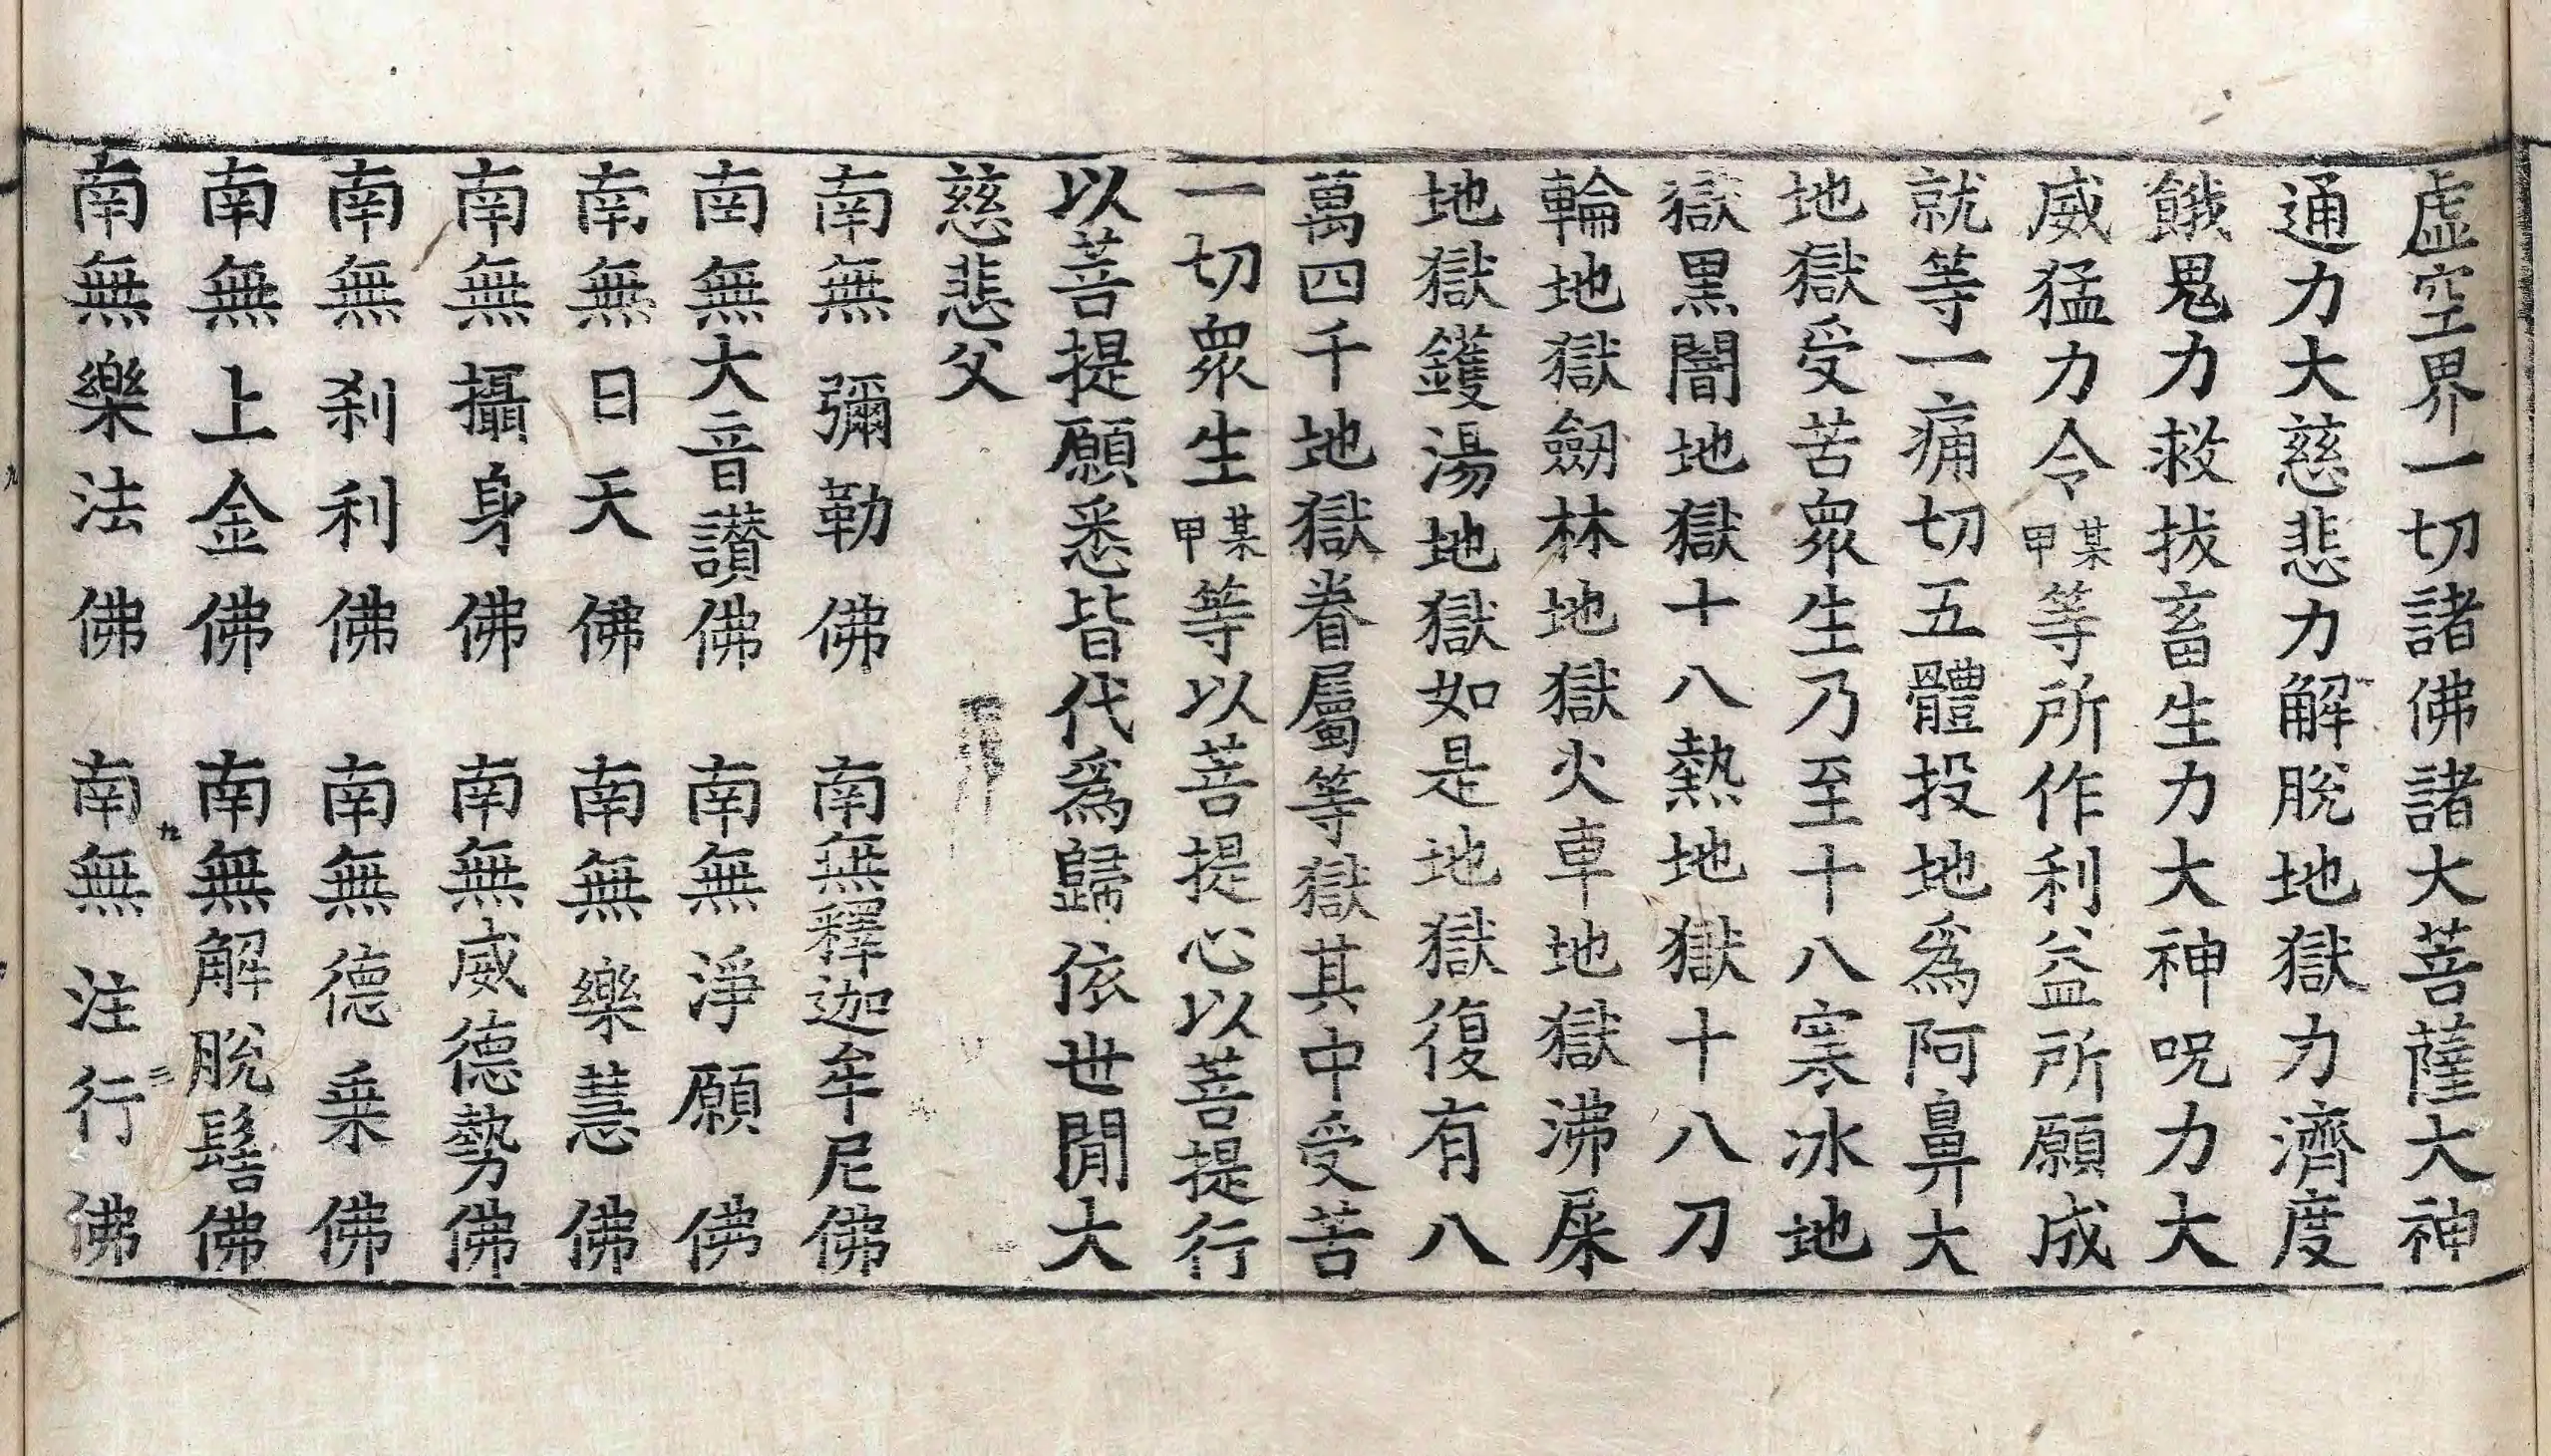 虛空界一切諸佛諸大菩薩大神
通力大慈悲力解脫地獄力濟度
餓鬼力救拔畜生力大神呪力大
威猛力令某甲等所作利益所願成
就等一痛切五體投地爲阿鼻大
地獄受苦衆生乃至十八寒冰地
獄黑闇地獄十八熱地獄十八刀
輪地獄劒林地獄火車地獄沸屎
地獄鑊湯地獄如是地獄復有八
萬四千地獄眷屬等獄其中受苦
一切衆生某甲等以菩提心以菩提行
以菩提願悉皆代爲歸依世間大
慈悲父
南無彌勒佛 南無釋迦牟尼佛
南無大音讃佛 南無淨願佛
南無日天佛 南無樂慧佛
南無攝身佛 南無威德勢佛
南無刹利佛 南無德乗佛
南無上金佛 南無解脫髻佛
南無樂法佛 南無注行佛